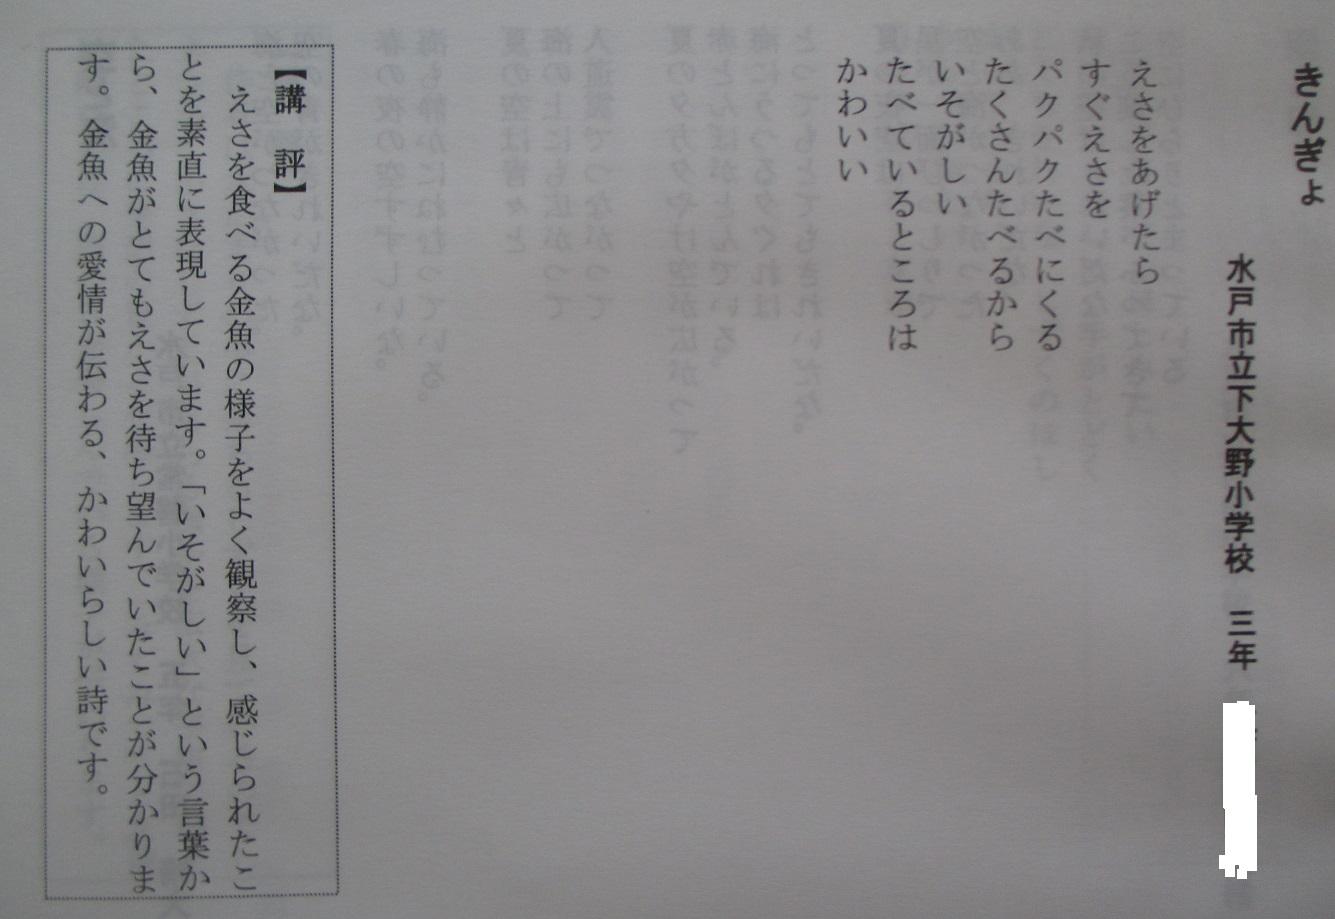 きんぎょ
水戸市立下大野小学校　三年
えさをあげたら
すぐえさを
パクパクたべにくる
たくさんたべるから
いそがしい
たべているところは
かわいい
【講　評】
えさを食べる金魚の様子をよく観察し、感じられたこ
とを素直に表現しています。「いそがしい」という言葉か
ら、金魚がとてもえさを待ち望んでいたことが分かりま
す。金魚への愛情が伝わる、かわいらしい詩です。